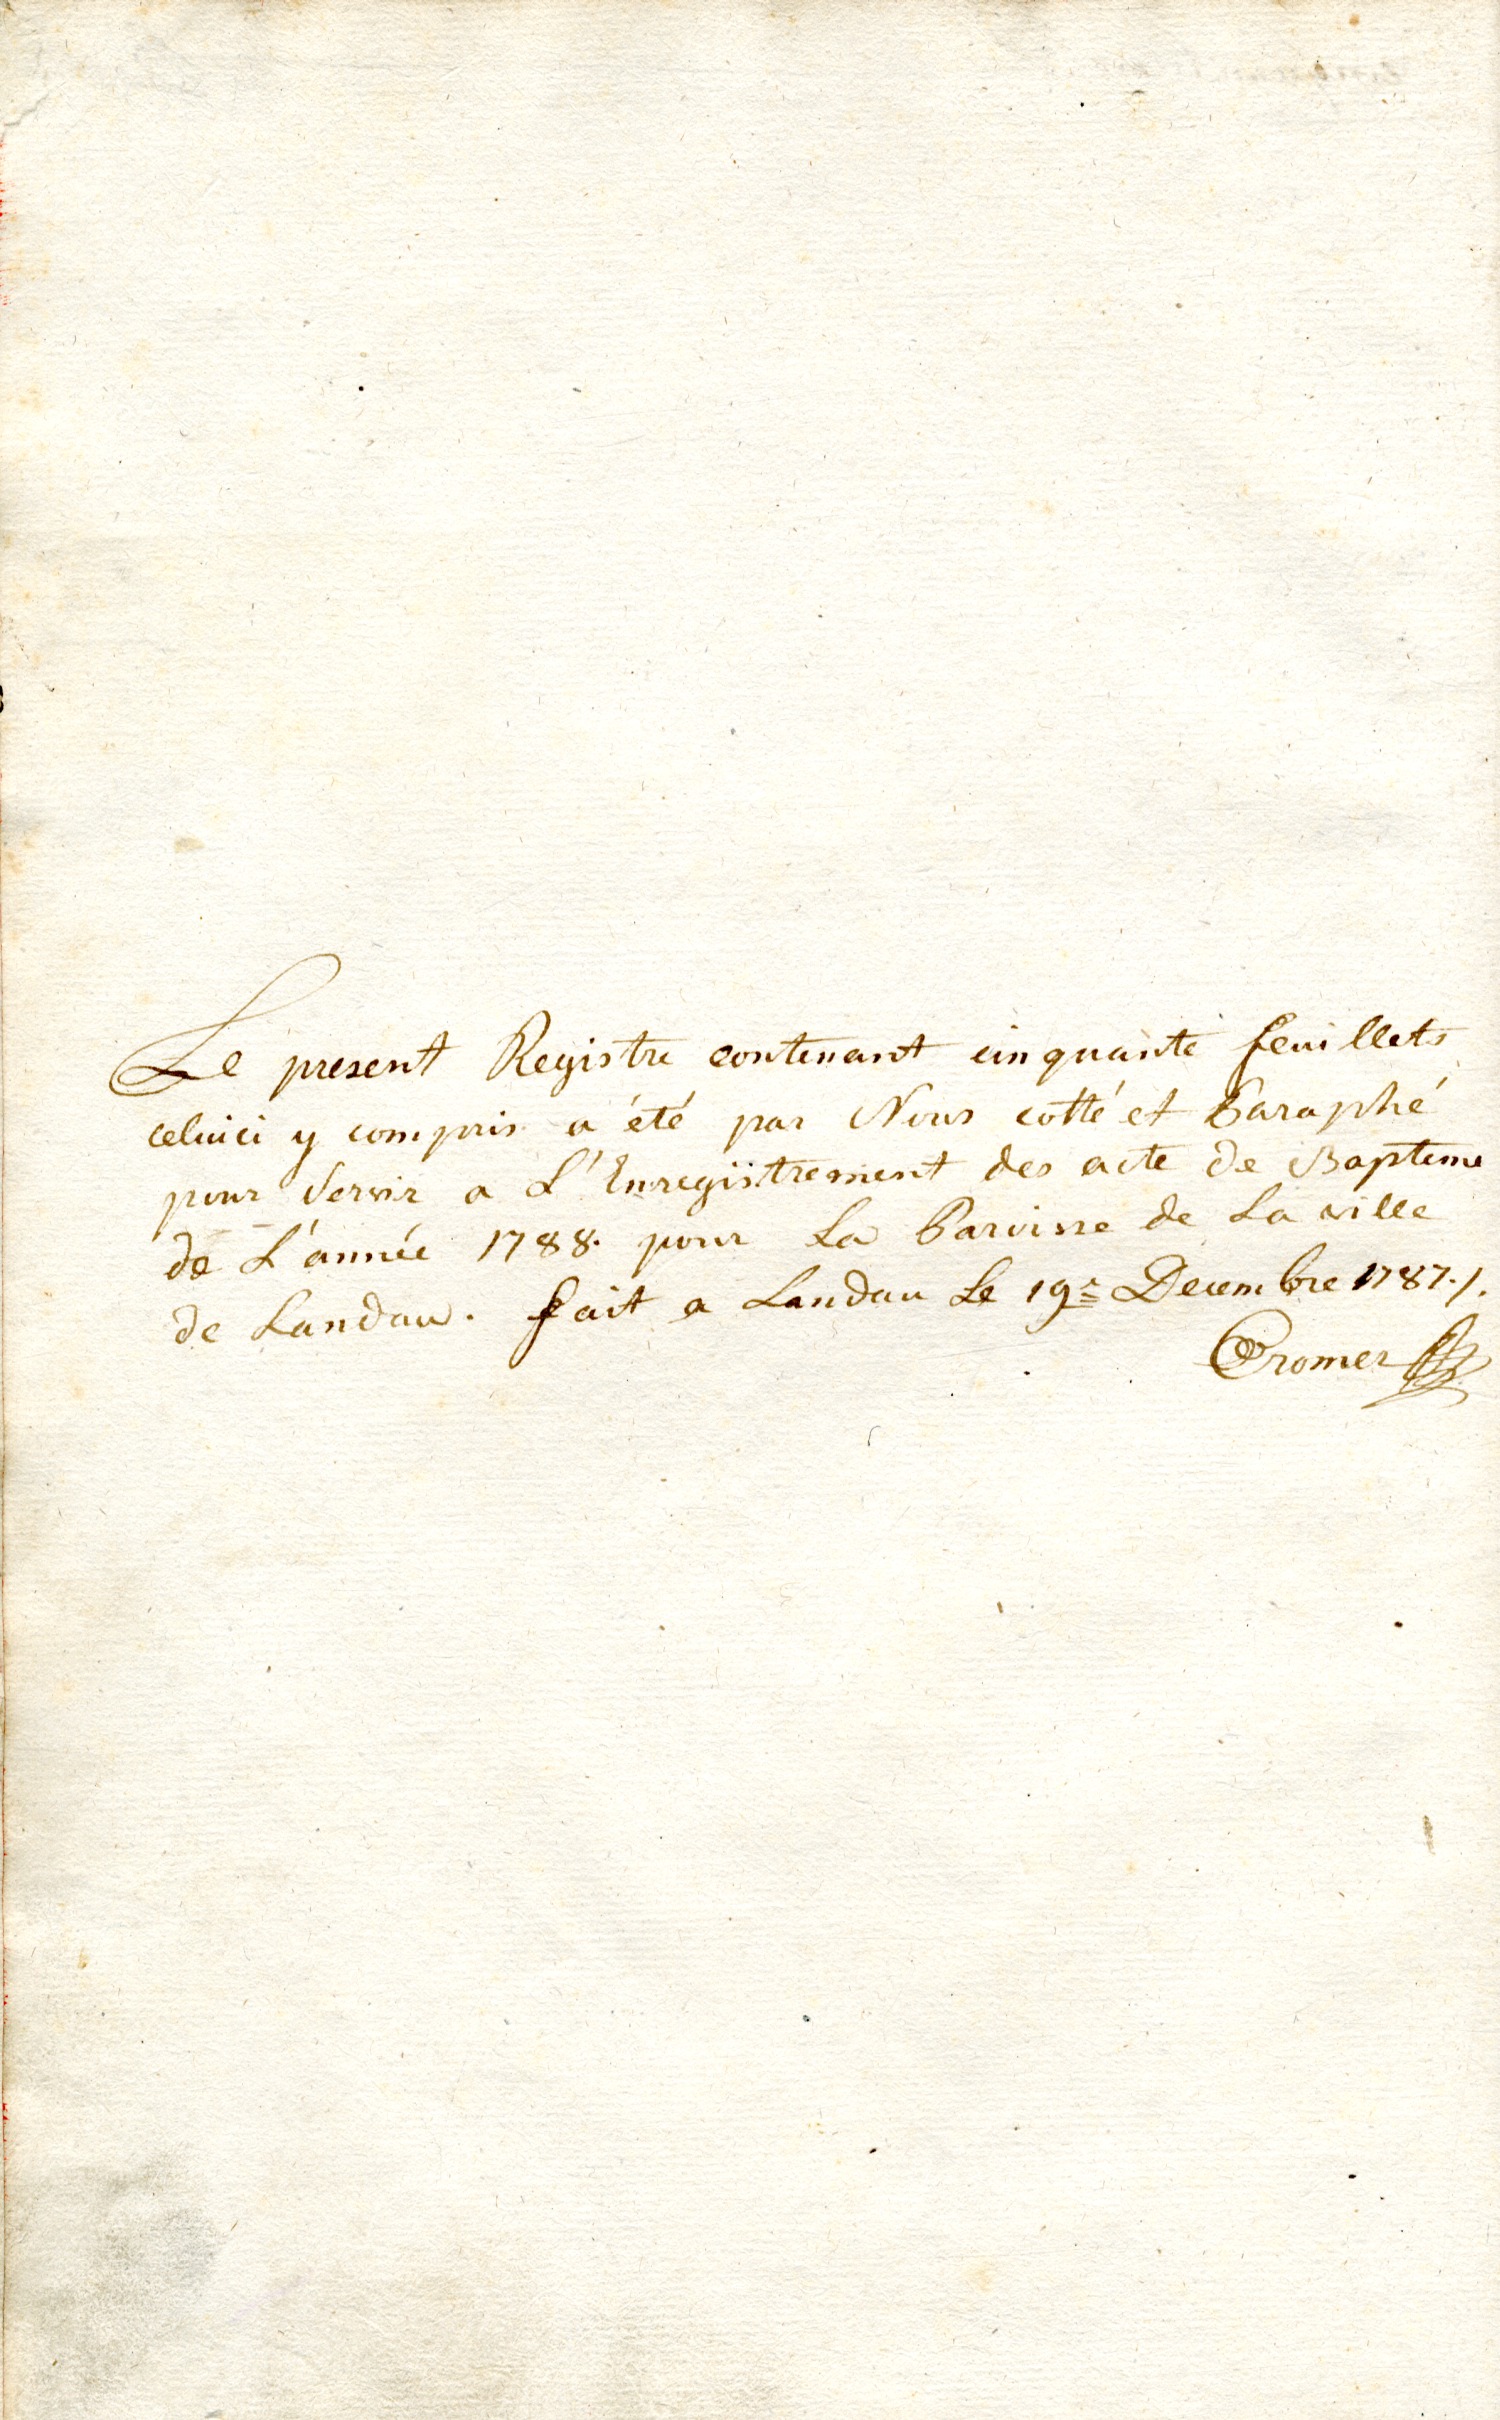 Le present Registre contenant cinquante feuillets
celuici y compris a été par Nous cotté et Paraphé
pour Servir a L'Enregistrement des acte de Bapteme
de L'année 1788. pour La Paroisse de La ville
de Landau. fait a Landau Le 19e Decembre 1787./.
Cromer